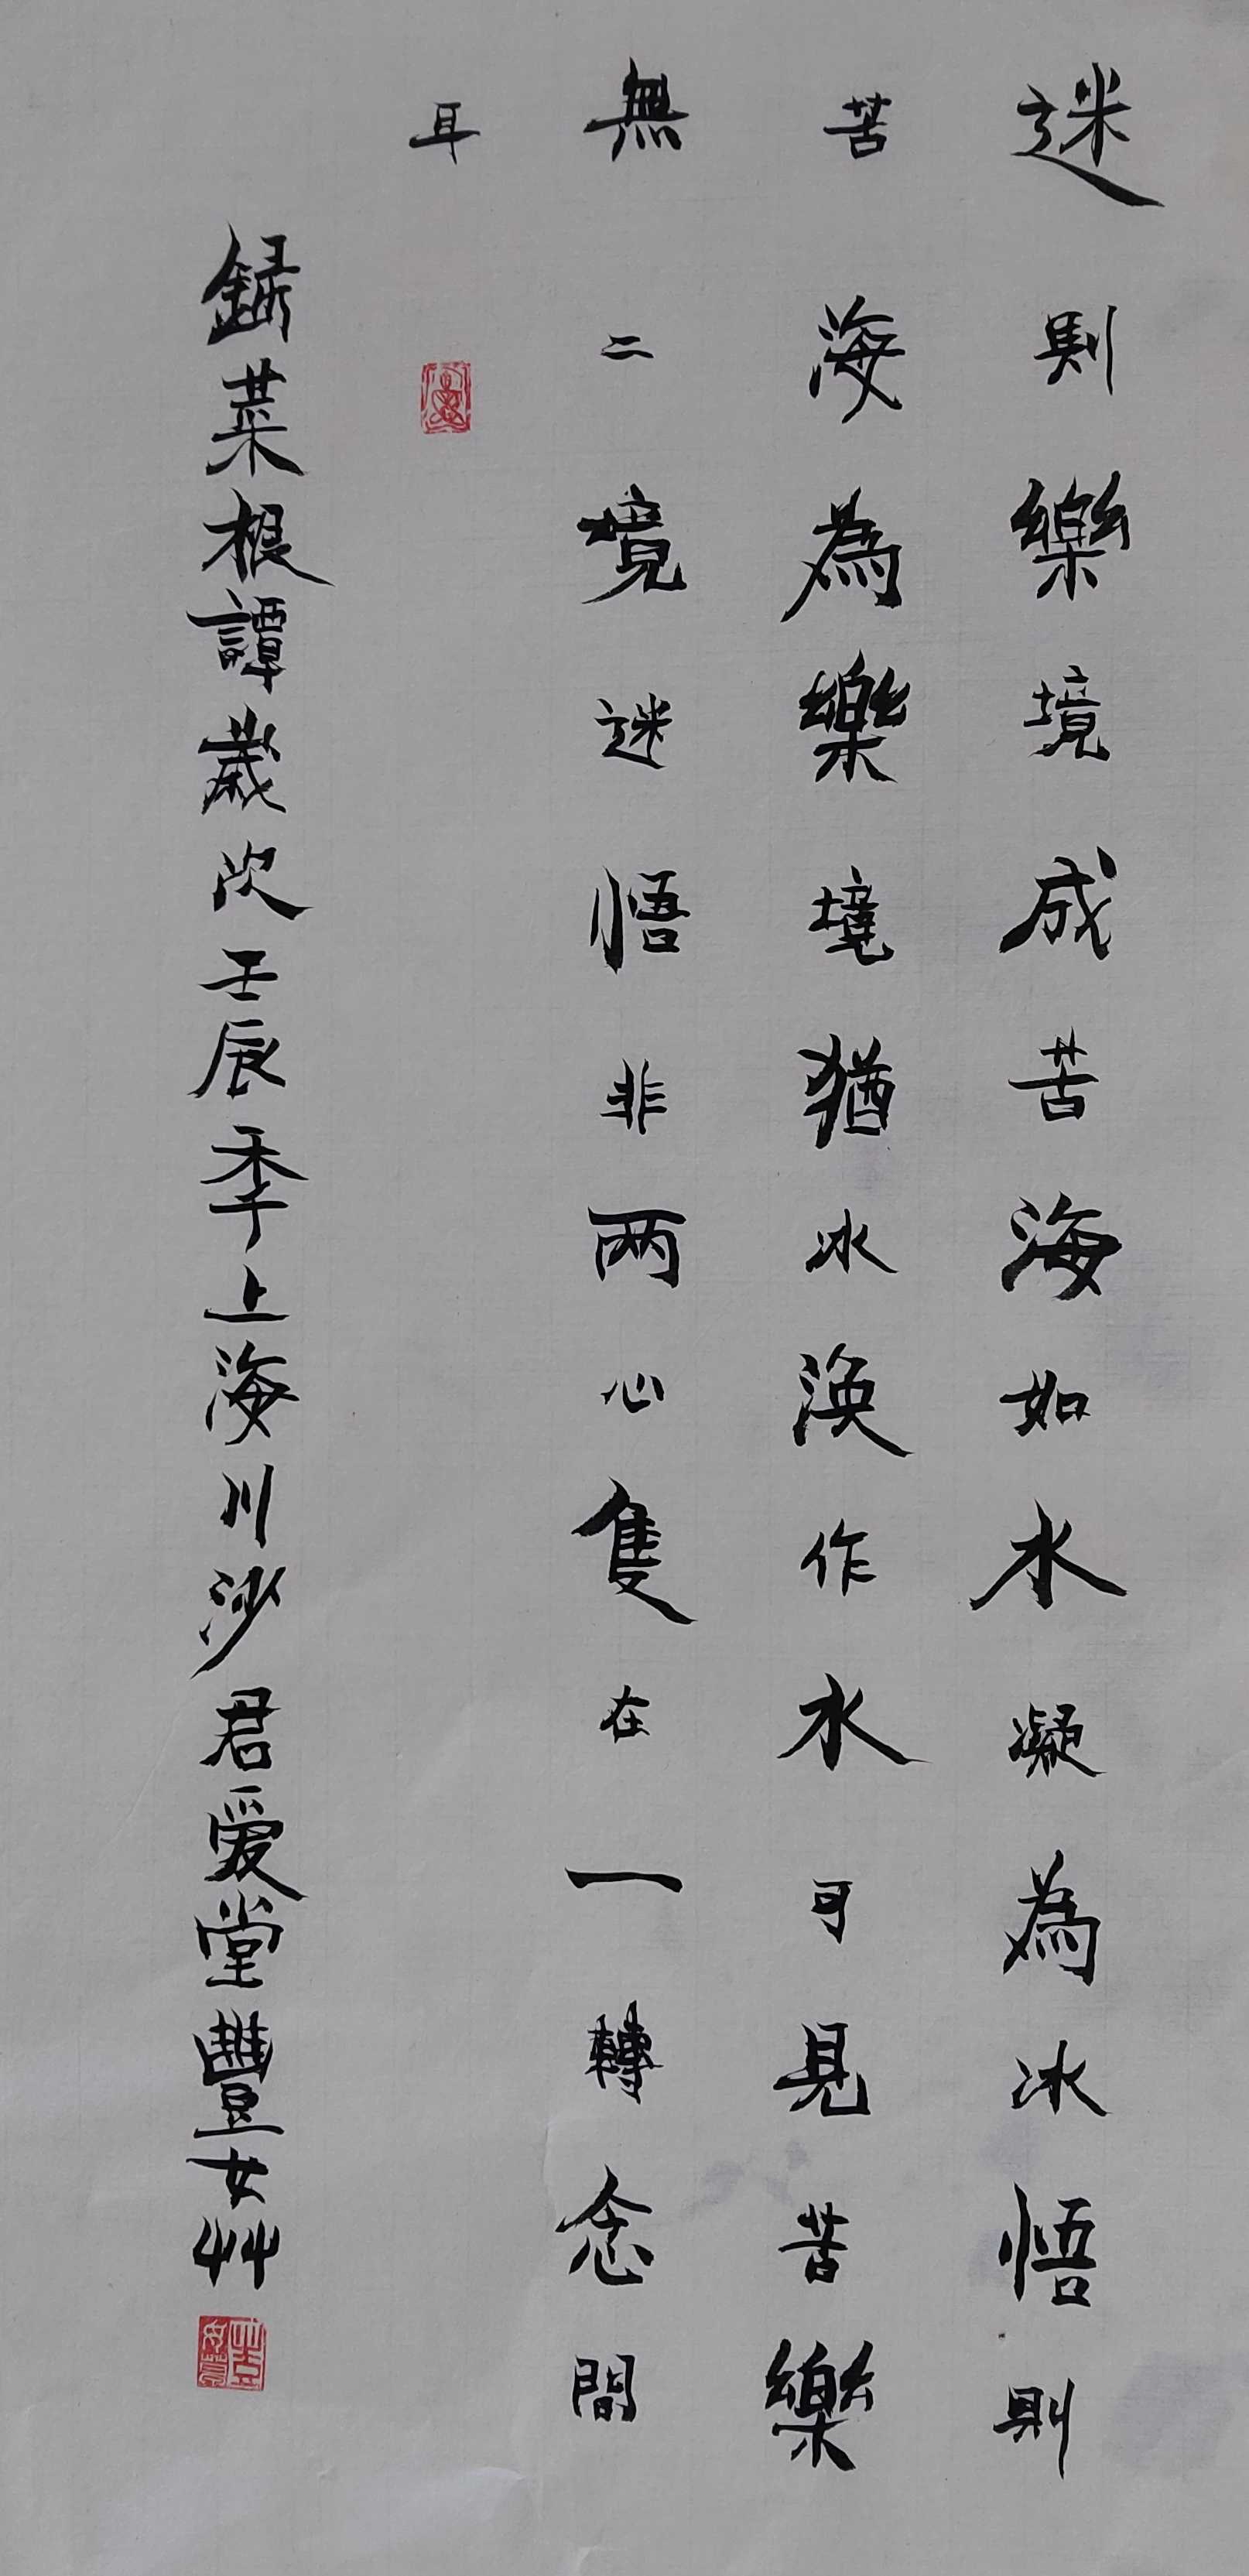 迷則樂境成苦海如水凝為冰悟則
苦海為樂境猶冰渙作水可見苦樂
無二境迷悟非兩心隻在一轉念間
耳
錄菜根譚歲次壬辰季上海川沙君愛堂豐女艸